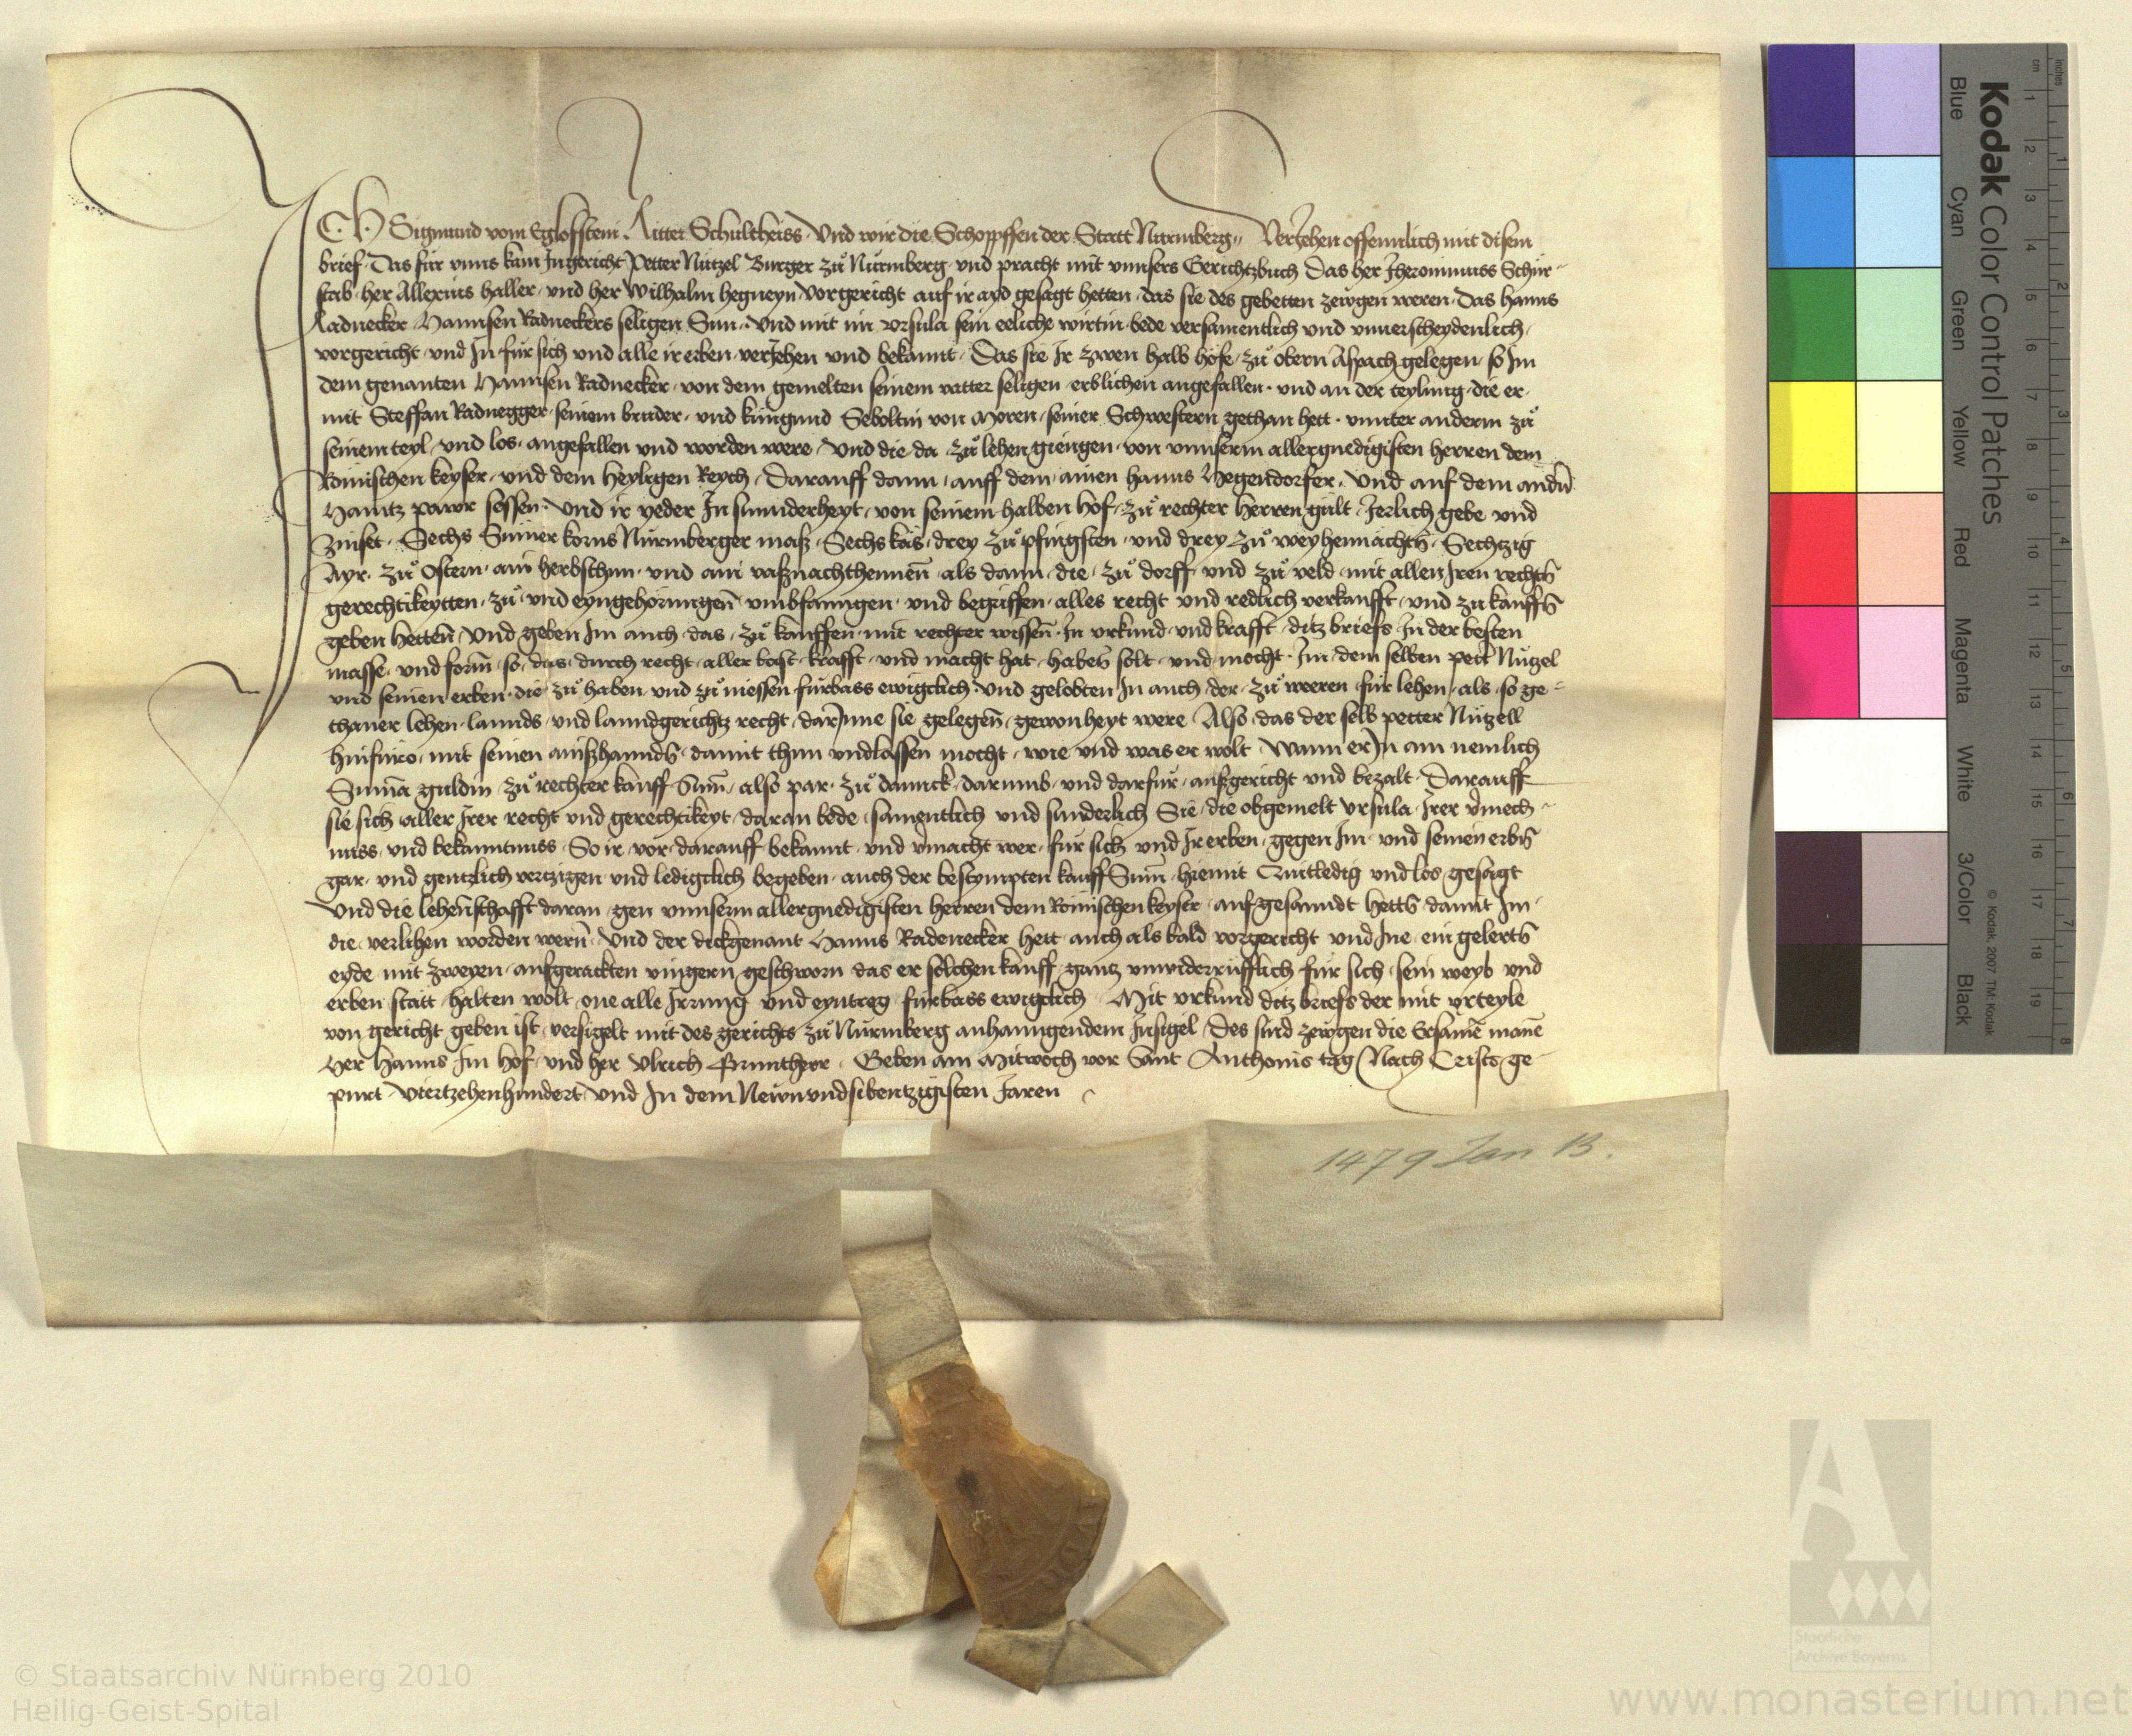 ICH Sigmund vom Eglofstein Ritter Schultheiss Und wir die Schopffen der Statt Nuremberg Verjehen offennlich mit disem
brief Das für vnns kam Jn gericht Petter Nützel Burger zů Nüremberg vnd pracht mit vnnsers Gerichtzbuch Das her Jheronimuss Schür-
stab her Allexius haller vnd her Wilhalm hegneyn vorgericht auf ir ayd gesagt hetten das sie des gebetten zewgen weren das hanns
Radnecker Hannsen Radneckers seligen Sun Und mit im Vrsula sein eeliche wirtin bede versamentlich vnd vnuerscheydenlich
vorgericht vnd Jn für sich vnd alle ir erben verjehen vnd bekannt Das sie Jr zwen halb höfe zů obern Aspach gelegen so Jm
dem genanten Hannsen Radnecker von dem gemelten seinem vatter seligen erblichen angefallen vnd an der teylung die er
mit Steffan Radnegger seinem bruder vnd kungund Seboltin von Moren seiner Schwestern gethan hett vnnter anderm zů
seinem teyl vnd los angefallen vnd worden were Und die da zů lehen giengen von vnnserm allergnedigisten herren dem
Römischen keyser vnd dem heyligen Reych Darauff dann auff dem ainen hanns Hegendorfer Und auf dem andn̄
Hanntz pawr sessen Und ir yeder Jn sunnderheyt von seinem halben hof zů rechter herren gült Jerlich gebe vnd
zinset Sechs Sümer korns Nüremberger maß Sechs käs drey zů pfingsten vnd drey zů weyhennächtn̄ Sechtzig
Ayr zů Ostern ain herbsthun vnd ain vaßnachthennen als dann die zů dorff vnd zů veld mit allen Jren rechtn̄
gerechtikeytten zů vnd eyngehörungen̄ vmbfanngen vnd begriffen alles recht vnd redlich verkaufft vnd zu kauffn̄
geben hetten̄ Und geben Jm auch das zů kauffen mit rechter wissen̄ Jn vrkund vnd krafft ditz briefs Jn der besten
masse vnd form̄ so das durch recht aller bast krafft vnd macht hat haben̄ solt vnd mocht Jm dem selben pett̄ Nützel
vnd seinen erben die zů haben vnd zů niessen fürbass ewigclich Und gelobten Jn auch der zů weren für lehen als so ge-
thaner lehen lannds vnd lanndgerichtz recht darJnne sie gelegen̄ gewonheyt were Also das der selb petter Nützell
hinfuro mit seinen außhannden̄ damit thun vnd lassen mocht wie vnd was er wolt Wann er Jn ain nemlich
Summa guldin zů rechter kauff Sum̄ also par zů dannck darumb vnd darfür außgericht vnd bezalt Darauff
sie sich aller Jrer recht vnd gerechtikeyt daran bede samentlich vnd sunderlich Sie die obgemelt Vrsula Jrer v̄mech-
nuss vnd bekanntnuss So ir vor darauff bekannt vnd v̄macht wer für sich vnd Jr erben gegen Jm vnd seinen erbn̄
gar vnd gentzlich vertzigen vnd ledigclich begeben auch der bestympten kauff Sum̄ hiemit Quitledig vnd los gesagt
Und die lehen̄schafft daran gen vnnserm allergnedigisten herren dem Römischen keyser aufgesanndt hettn̄ damit Jm
die verlihen worden wern̄ Und der dickgenant Hanns Radenecker hett auch als bald vorgericht vnd Jne ein gelertn̄
eyde mit zweyen aufgerackten vingern geschworn das er sölchen kauff gantz vnwiderrüfflich für sich sein weyb vnd
erben statt halten wolt one alle Jrrung vnd eyntreg fürbass ewigclich Mit vrkund ditz briefs der mit vrteyle
von gericht geben ist versigelt mit des gerichts zů Nüremberg anhanngendem Jnsigel Des sind zewgen die Ersamē manē
Her Hanns Jm hof vnd her Vlrich Gruntherr Geben am Mitwoch vor Sant Anthonis tag Nach Cristo ge-
purt Viertzehenhundert Und Jn dem Newnundsibentzigisten Jaren
1479 Jan 13.
Kodak Color Control Patches
Blue Cyan Green Yellow Red Magenta White 3/Color Black
© Kodak, 2007 TM: Kodak
cm 1 2 3 4 5 6 7 8 9 10 11 12 13 14 15 16 17 18 19
Inches 1 2 3 4 5 6 7 8
Staatliche
Archive Bayerns
© Staatsarchiv Nürnberg 2010
Heilig-Geist-Spital
www.monasterium.net